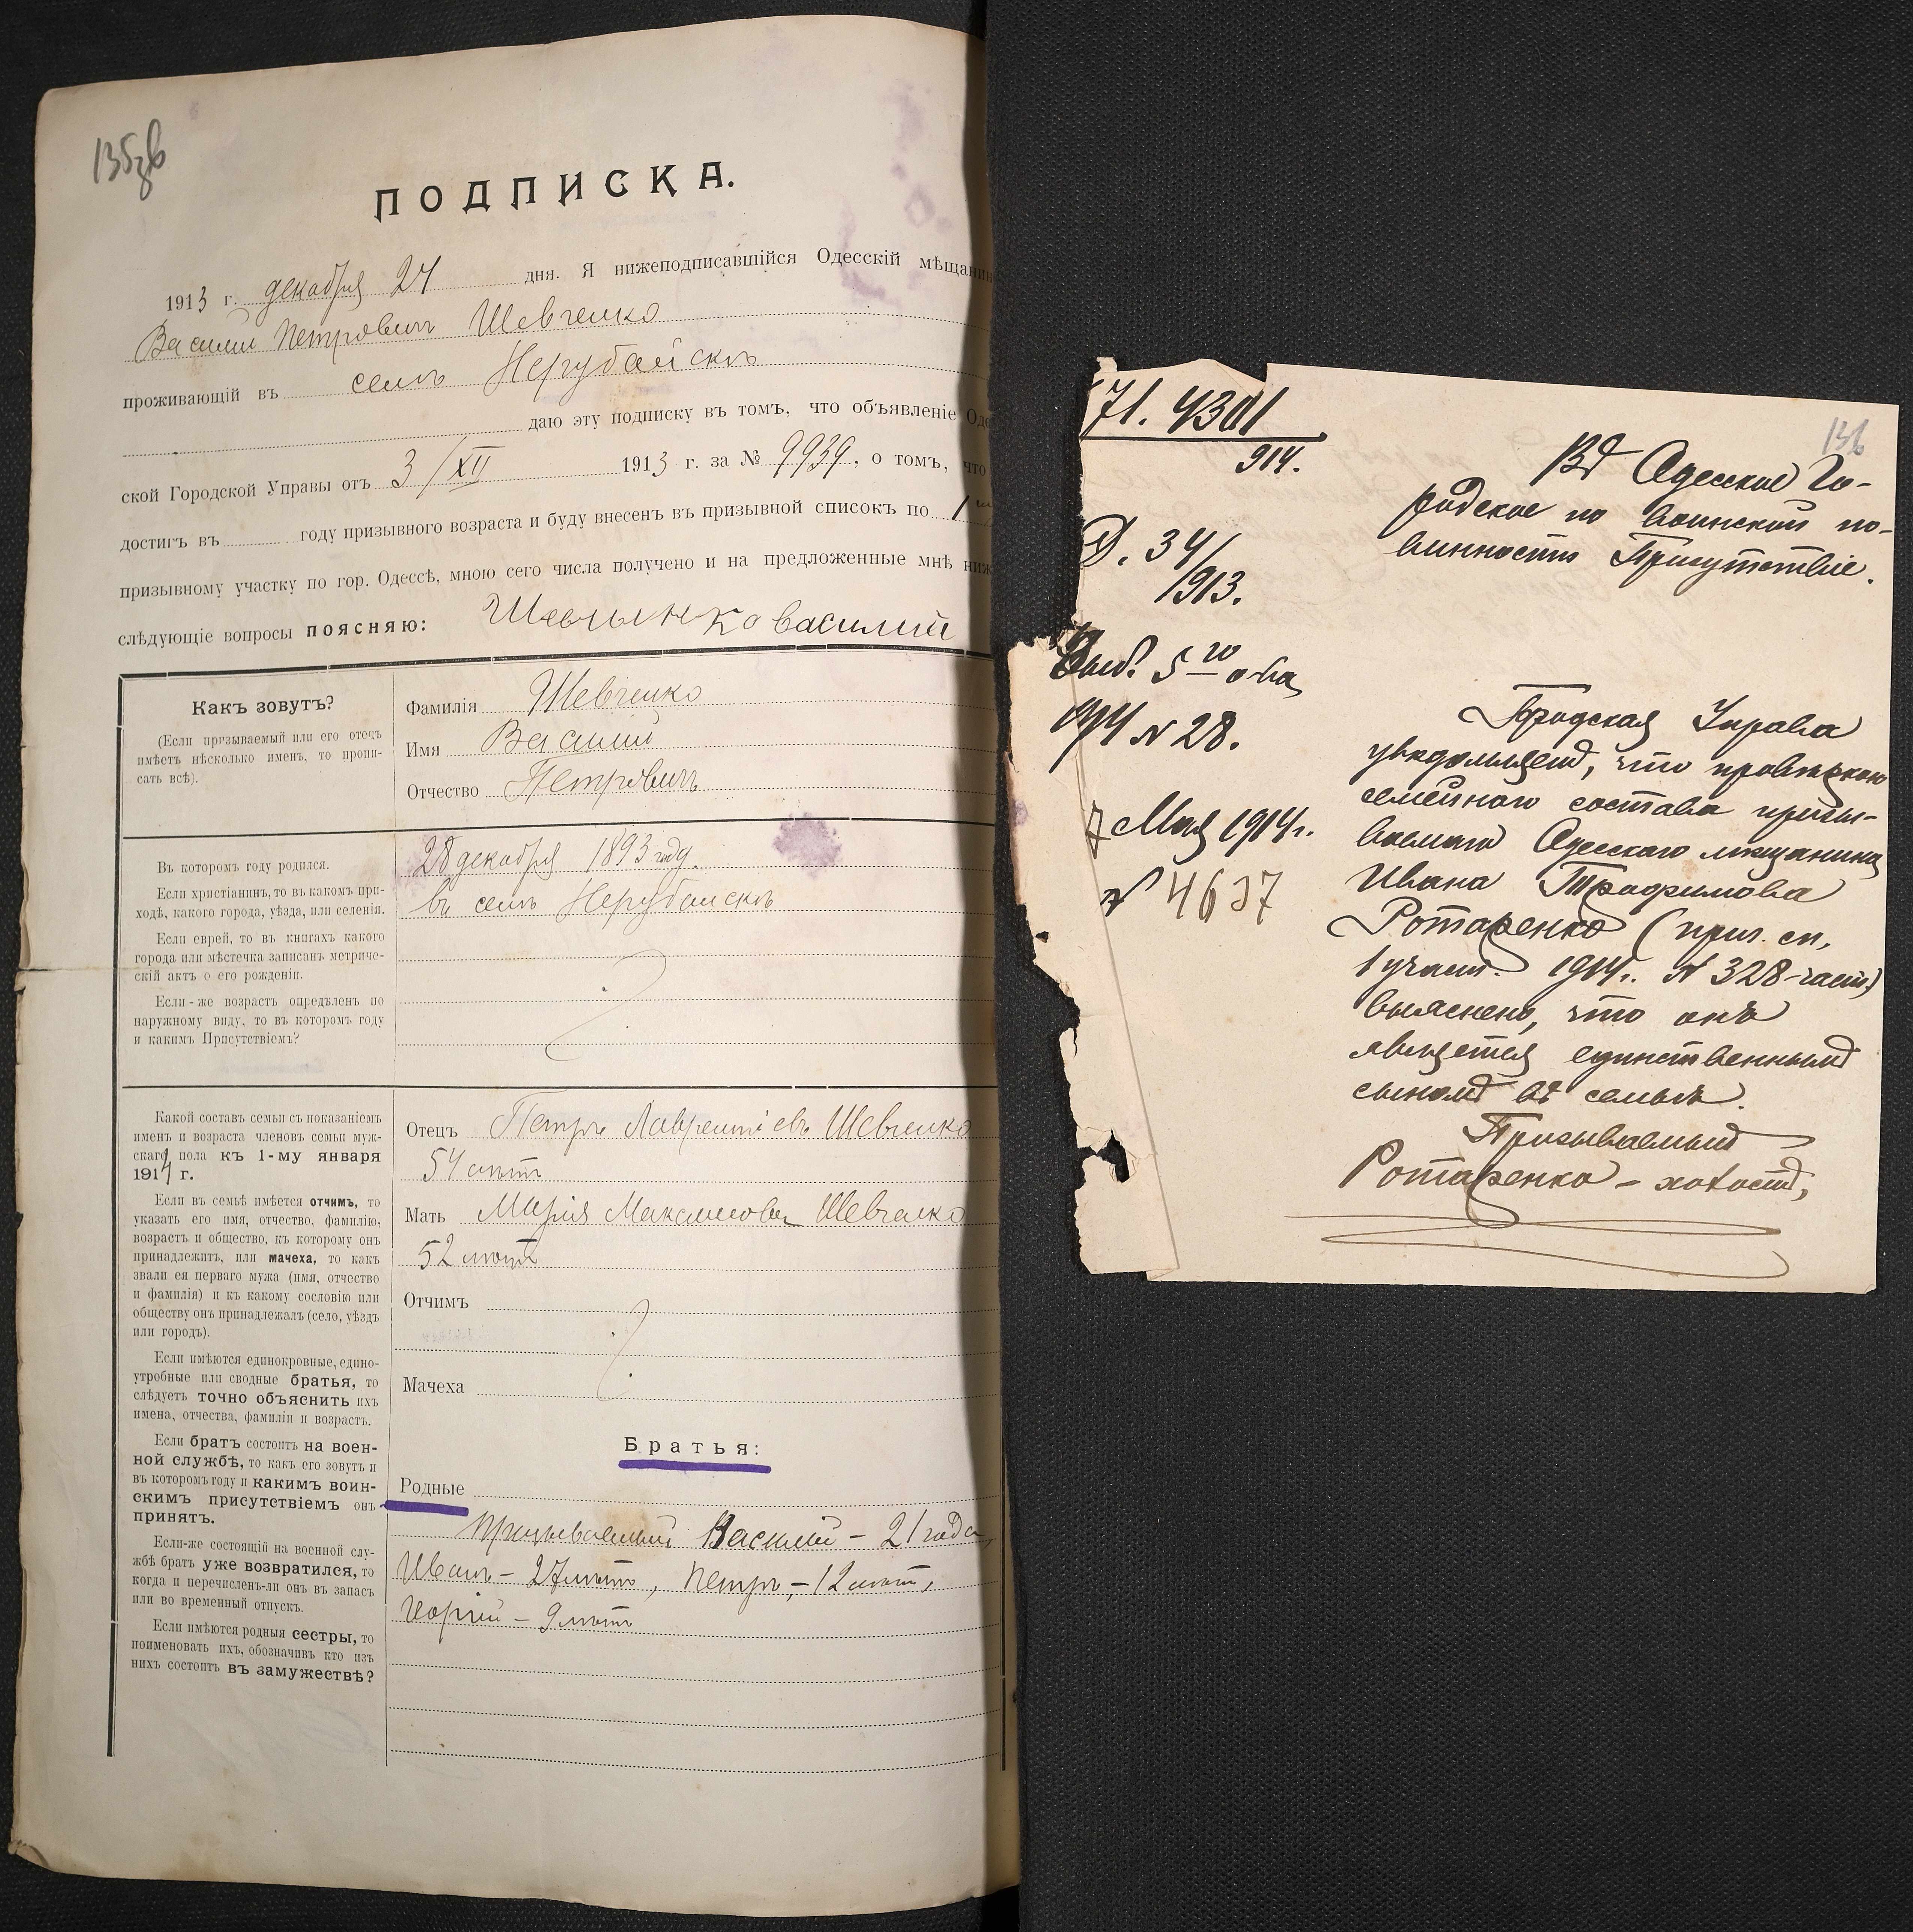 135зв
ПОДПИСКА.
1913 г. декабря 24 дня. Я нижеподписавшійся Одесскій мѣщанин
Василий Петровичъ Шевченко
проживающій въ селѣ Нерубайскѣ
даю эту подписку въ томъ, что объявленіе Одес
ской Городской Управы отъ 3/XII 1913 г. за № 9939, о томъ, что
достигъ въ году призывного возраста и буду внесенъ въ призывной списокъ по 1
призывному участку по гор. Одессѣ, мною сего числа получено и на предложенные мнѣ ниж
слѣдующіе вопросы поясняю: Шевченко Василий
Какъ зовутъ?
(Если призываемый или его отецъ
имѣетъ нѣсколько именъ, то пропи-
сать всѣ).
Фамилія Шевченко
Имя Василий
Отчество Петровичъ
Въ котором году родился.
Если христіанин, то въ каком при-
ходѣ, какого города, уѣзда, или селенія.
Если еврей, то въ книгахъ какого
города или мѣстечка записанъ метриче-
скій актъ о его рожденіи.
Если-же возрастъ опредѣленъ по
наружному виду, то въ котором году
и какимъ Присутствіемъ?
28 декабря 1893 году.
въ селѣ Нерубайскѣ
Какой составъ семьи съ показаніемъ
именъ и возраста членовъ семьи муж-
скаго пола къ 1-му января
1914 г.
Если въ семьѣ имѣется отчимъ, то
указать его имя, отчество, фамилію,
возрастъ и общество, къ которому онъ
принадлежитъ, или мачеха, то какъ
звали ея перваго мужа (имя, отчество
и фамилія) и къ какому сословію или
обществу онъ принадлежалъ (село, уѣздъ
или городъ).
Если имѣются единокровные, едино-
утробные или сводные братья, то
слѣдуетъ точно объяснить ихъ
имена, отчества, фамиліи и возрастъ.
Если братъ состоитъ на воен-
ной службѣ, то какъ его зовутъ и
въ котором году и какимъ воин-
скимъ присутствіемъ онъ
принятъ.
Если-же состоящій на военной слу-
жбѣ братъ уже возвратился, то
когда и перечисленъ-ли онъ въ запасъ
или во временный отпускъ.
Если имѣются родныя сестры, то
поименовать ихъ, обозначивъ кто изъ
нихъ состоитъ въ замужествѣ?
Отецъ Петръ Лаврентіевъ Шевченко
54 лѣтъ
Мать Марія Максимова Шевченко
52 лѣтъ
Отчимъ
Мачеха
Братья:
Родные
Призываемый Василий – 21 года,
Иванъ – 27 лѣтъ, Петръ – 12 лѣтъ,
Георгий – 9 лѣтъ
71. 4301
914.
Д. 34/
1913.
5го о-ва
1914 № 28.
7 Мая 1914 г.
№ 4637
136
Въ Одесское Го-
родское по воинской по-
винности Присутствіе.
Городская Управа
увѣдомляетъ, что провѣркою
семейнаго состава призы-
ваемаго Одесскаго мѣщанина
Ивана Трофимова
Ротаренко (приз. сп.
1 участ. 1914 г. № 328-част)
выяснено, что онъ
является единственнымъ
сыномъ въ семьѣ.
Призываемый
Ротаренко – холостъ,